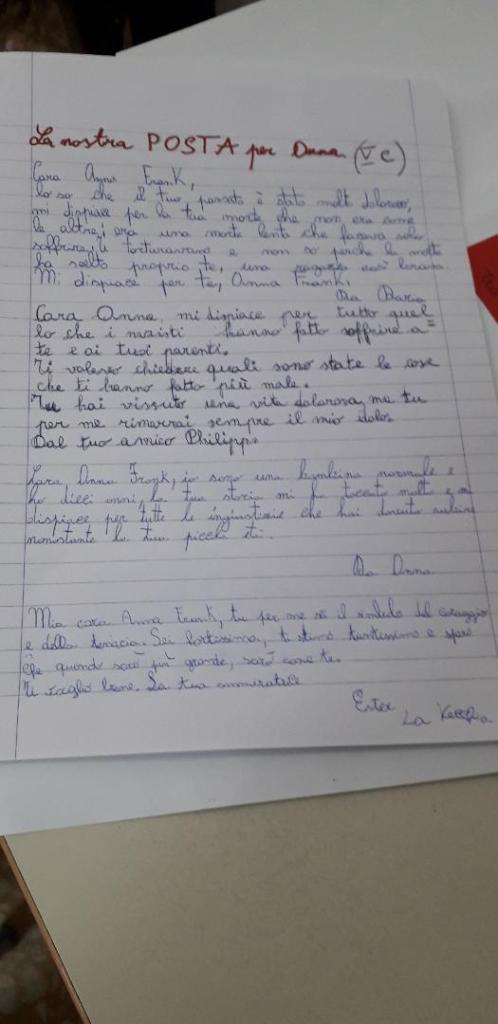 La nostra POSTA per Anna (V C)
Cara Anna Frank,
lo so che il tuo passato è stato molt doloroso,
mi dispiace per la tua morte che non era come
le altre, era una morte lenta che faceva solo
soffrire, ti torturavano e non so perché la morte
ha scelto proprio te, una così
Mi dispiace per te, Anna Frank.
Da
Cara Anna, mi dispiace per tutto quel
lo che i nazisti hanno fatto soffrire a
te e ai tuoi parenti.
Ti volevo chiedere quali sono state le cose
che ti hanno fatto più male.
Tu hai vissuto una vita dolorosa, ma tu
per me rimarrai sempre il mio
Dal tuo amico Philipp.
Cara Anna Frank, io sono una bambina normale e
ho dieci anni, la tua storia mi ha toccato molto e mi
dispiace per tutte le ingiustizie che hai dovuto subire
nonostante la tua età.
Da Anna
Mia cara Anna Frank, tu per me sei il simbolo del coraggio
e della tenacia. Sei fortissima, ti stimo tantissimo e spero
che quando sarò più grande, sarò come te.
Ti voglio bene. La tua ammiratrice
Ester
La